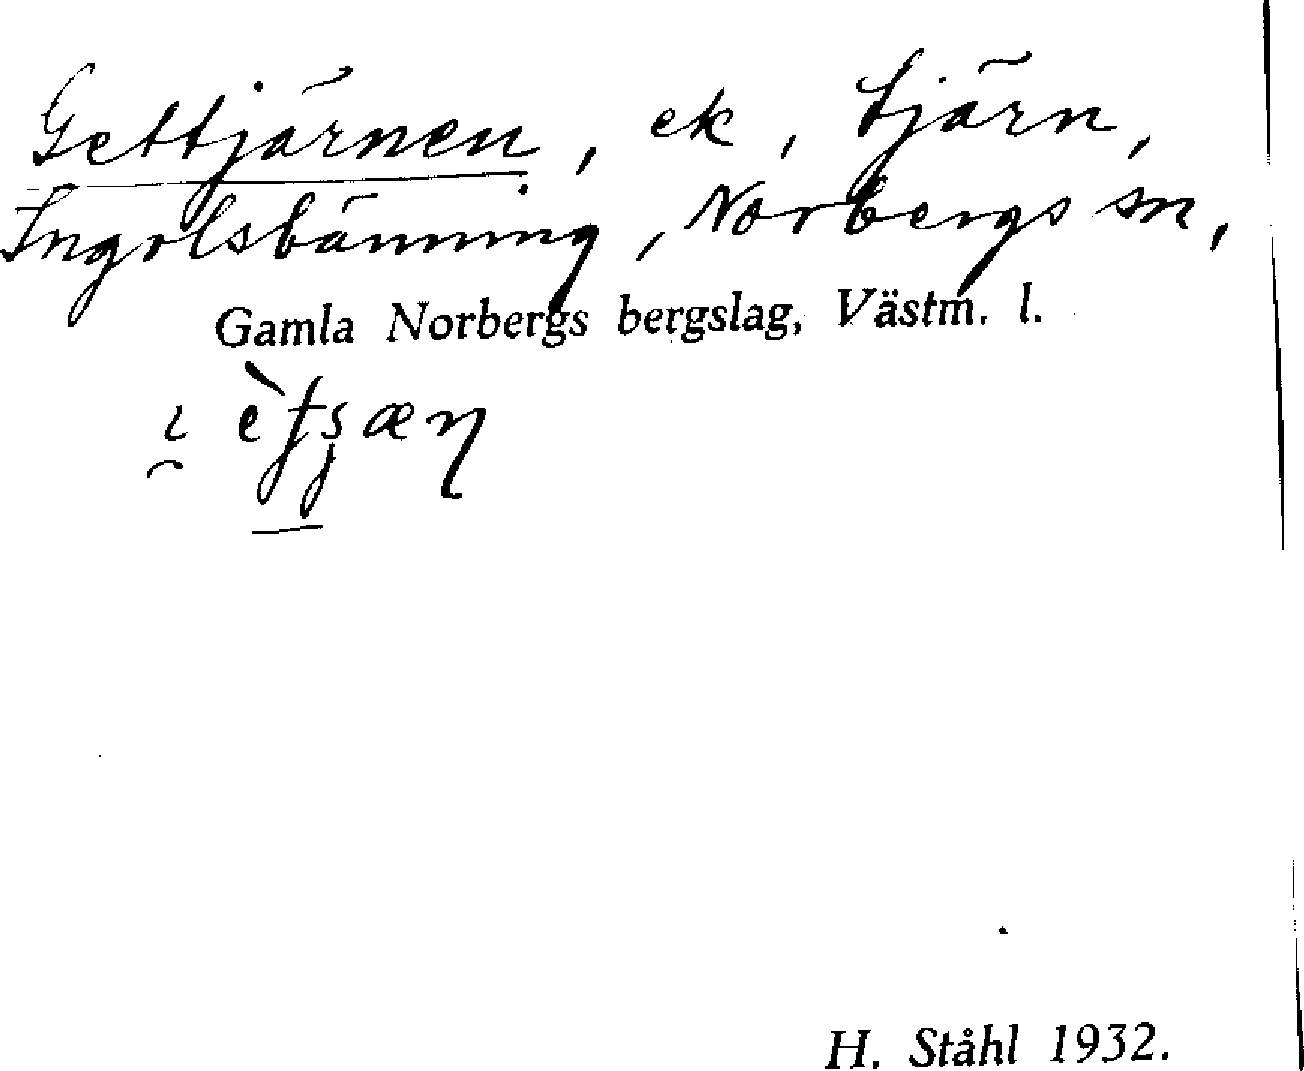 Gettjärnen, ek, tjärn,
Ingolsbänning, Norbergs sn,
Gamla Norbergs bergslag, Västm. l.
H. Ståhl 1932.